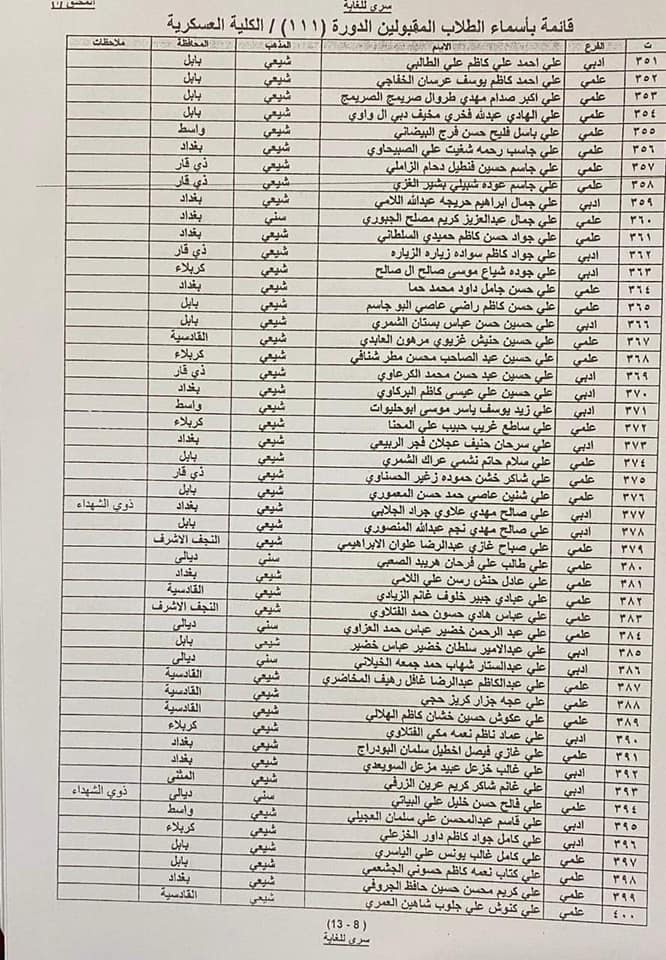 سري للغاية
الملحق (أ)
قائمة بأسماء الطلاب المقبولين الدورة (١١١) / الكلية العسكرية
ت الفرع الاسم المذهب المحافظة ملاحظات
٣٥١ ادبي علي احمد علي كاظم علي الطالبي شيعي بابل
٣٥٢ علمي علي احمد كاظم يوسف عرسان الخفاجي شيعي بابل
٣٥٣ علمي علي اكبر صدام مهدي طروال صريمج الصريمج شيعي بابل
٣٥٤ علمي علي الهادي عبدالله فخري مخيف دبي ال واوي شيعي بابل
٣٥٥ علمي علي باسل فليح حسن فرج البيضاني شيعي واسط
٣٥٦ علمي علي جاسب رحمه شغيت علي الصبيحاوي شيعي بغداد
٣٥٧ علمي علي جاسم حسين فنطيل دحام الزاملي شيعي ذي قار
٣٥٨ علمي علي جاسم عوده شبيلي بشير الغزي شيعي ذي قار
٣٥٩ ادبي علي جمال ابراهيم حريجه عبدالله اللامي شيعي بغداد
٣٦٠ علمي علي جمال عبدالعزيز كريم مصلح الجبوري سني بغداد
٣٦١ علمي علي جواد حسن كاظم حميدي السلطاني شيعي بغداد
٣٦٢ ادبي علي جواد كاظم سواده زياره الزياره شيعي ذي قار
٣٦٣ ادبي علي جوده شياع موسى صالح ال صالح شيعي كربلاء
٣٦٤ علمي علي حسن جامل داود محمد حما شيعي بغداد
٣٦٥ علمي علي حسن كاظم راضي عاصي البو جاسم شيعي بابل
٣٦٦ ادبي علي حسين حسن عباس بستان الشمري شيعي بابل
٣٦٧ علمي علي حسين حنيش غزيوي مرهون العابدي شيعي القادسية
٣٦٨ علمي علي حسين عبد الصاحب محسن مطر شنافي شيعي كربلاء
٣٦٩ ادبي علي حسين عبد حسن محمد الكرعاوي شيعي ذي قار
٣٧٠ ادبي علي حسين علي عيسى كاظم البركاوي شيعي بغداد
٣٧١ ادبي علي زيد يوسف ياسر موسى ابوحليوات شيعي واسط
٣٧٢ علمي علي ساطع غريب حبيب علي المحنا شيعي كربلاء
٣٧٣ ادبي علي سرحان حنيف عجلان فجر الربيعي شيعي بغداد
٣٧٤ علمي علي سلام حاتم نشمي عراك الشمري شيعي بابل
٣٧٥ علمي علي شاكر خشن حموده زغير الحسناوي شيعي ذي قار
٣٧٦ علمي علي شنين عاصي حمد حسن المعموري شيعي بابل
٣٧٧ ادبي علي صالح مهدي علاوي جراد الجلابي شيعي بغداد ذوي الشهداء
٣٧٨ ادبي علي صالح مهدي نجم عبدالله المنصوري شيعي بابل
٣٧٩ علمي علي صباح غازي عبدالرضا علوان الابراهيمي شيعي النجف الاشرف
٣٨٠ علمي علي طالب علي فرحان هريبد الصعبي سني ديالى
٣٨١ علمي علي عادل حنش رسن علي اللامي شيعي بغداد
٣٨٢ علمي علي عبادي جبير خلوف غانم الزيادي شيعي القادسية
٣٨٣ علمي علي عباس هادي حسون حمد الفتلاوي شيعي النجف الاشرف
٣٨٤ علمي علي عبد الرحمن خضير عباس حمد العزاوي سني ديالى
٣٨٥ ادبي علي عبدالامير سلطان خضير عباس خضير شيعي بابل
٣٨٦ ادبي علي عبدالستار شهاب حمد جمعه الخيلاني سني ديالى
٣٨٧ علمي علي عبدالكاظم عبدالرضا غافل رهيف المخاضري شيعي القادسية
٣٨٨ علمي علي عجه جزار كريز حجي شيعي القادسية
٣٨٩ علمي علي عكوش حسين خشان كاظم الهلالي شيعي القادسية
٣٩٠ ادبي علي عماد ناظم نعمه مكي الفتلاوي شيعي كربلاء
٣٩١ علمي علي غازي فيصل اخطيل سلمان البودراج شيعي بغداد
٣٩٢ ادبي علي غالب خزعل عبيد مزعل السويعدي شيعي بغداد
٣٩٣ ادبي علي غانم شاكر كريم عرين الزرفي شيعي المثنى
٣٩٤ علمي علي فالح حسن خليل علي البياتي سني ديالى ذوي الشهداء
٣٩٥ ادبي علي قاسم عبدالمحسن علي سلمان العجيلي شيعي واسط
٣٩٦ ادبي علي كامل جواد كاظم داور الخزعلي شيعي كربلاء
٣٩٧ علمي علي كامل غالب يونس علي الياسري شيعي بابل
٣٩٨ علمي علي كتاب نعمه كاظم حسوني الجشعمي شيعي بابل
٣٩٩ علمي علي كريم محسن حسين حافظ الجروفي شيعي بغداد
٤٠٠ علمي علي كنوش علي جلوب شاهين العمري شيعي القادسية
(13 - 8)
سري للغاية